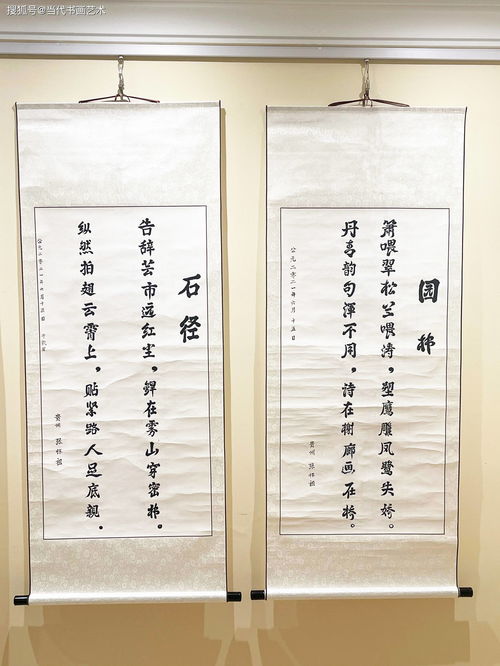 搜狐号@当代书画艺术
园林
翠松兰喂涛，塑鹰雕凤鹭失娇。
丹青韵句浑不用，诗在榭廊画在桥。
贵州 张
公元二零二一年六月十五日
石径
告辞芸市远红尘，在雾山穿密林。
纵然拍翅云霄上，贴紧路人足底亲。
贵州 张
公元二零二一年六月十五日